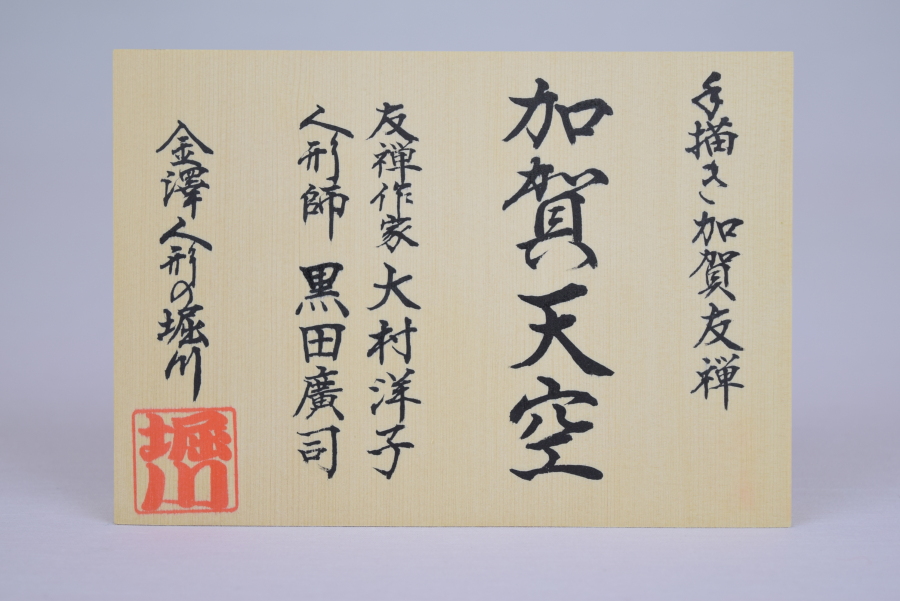 手描き加賀友禅
加賀天空
友禅作家 大村洋子
人形師 黒田廣司
金澤人形の堀川
堀川